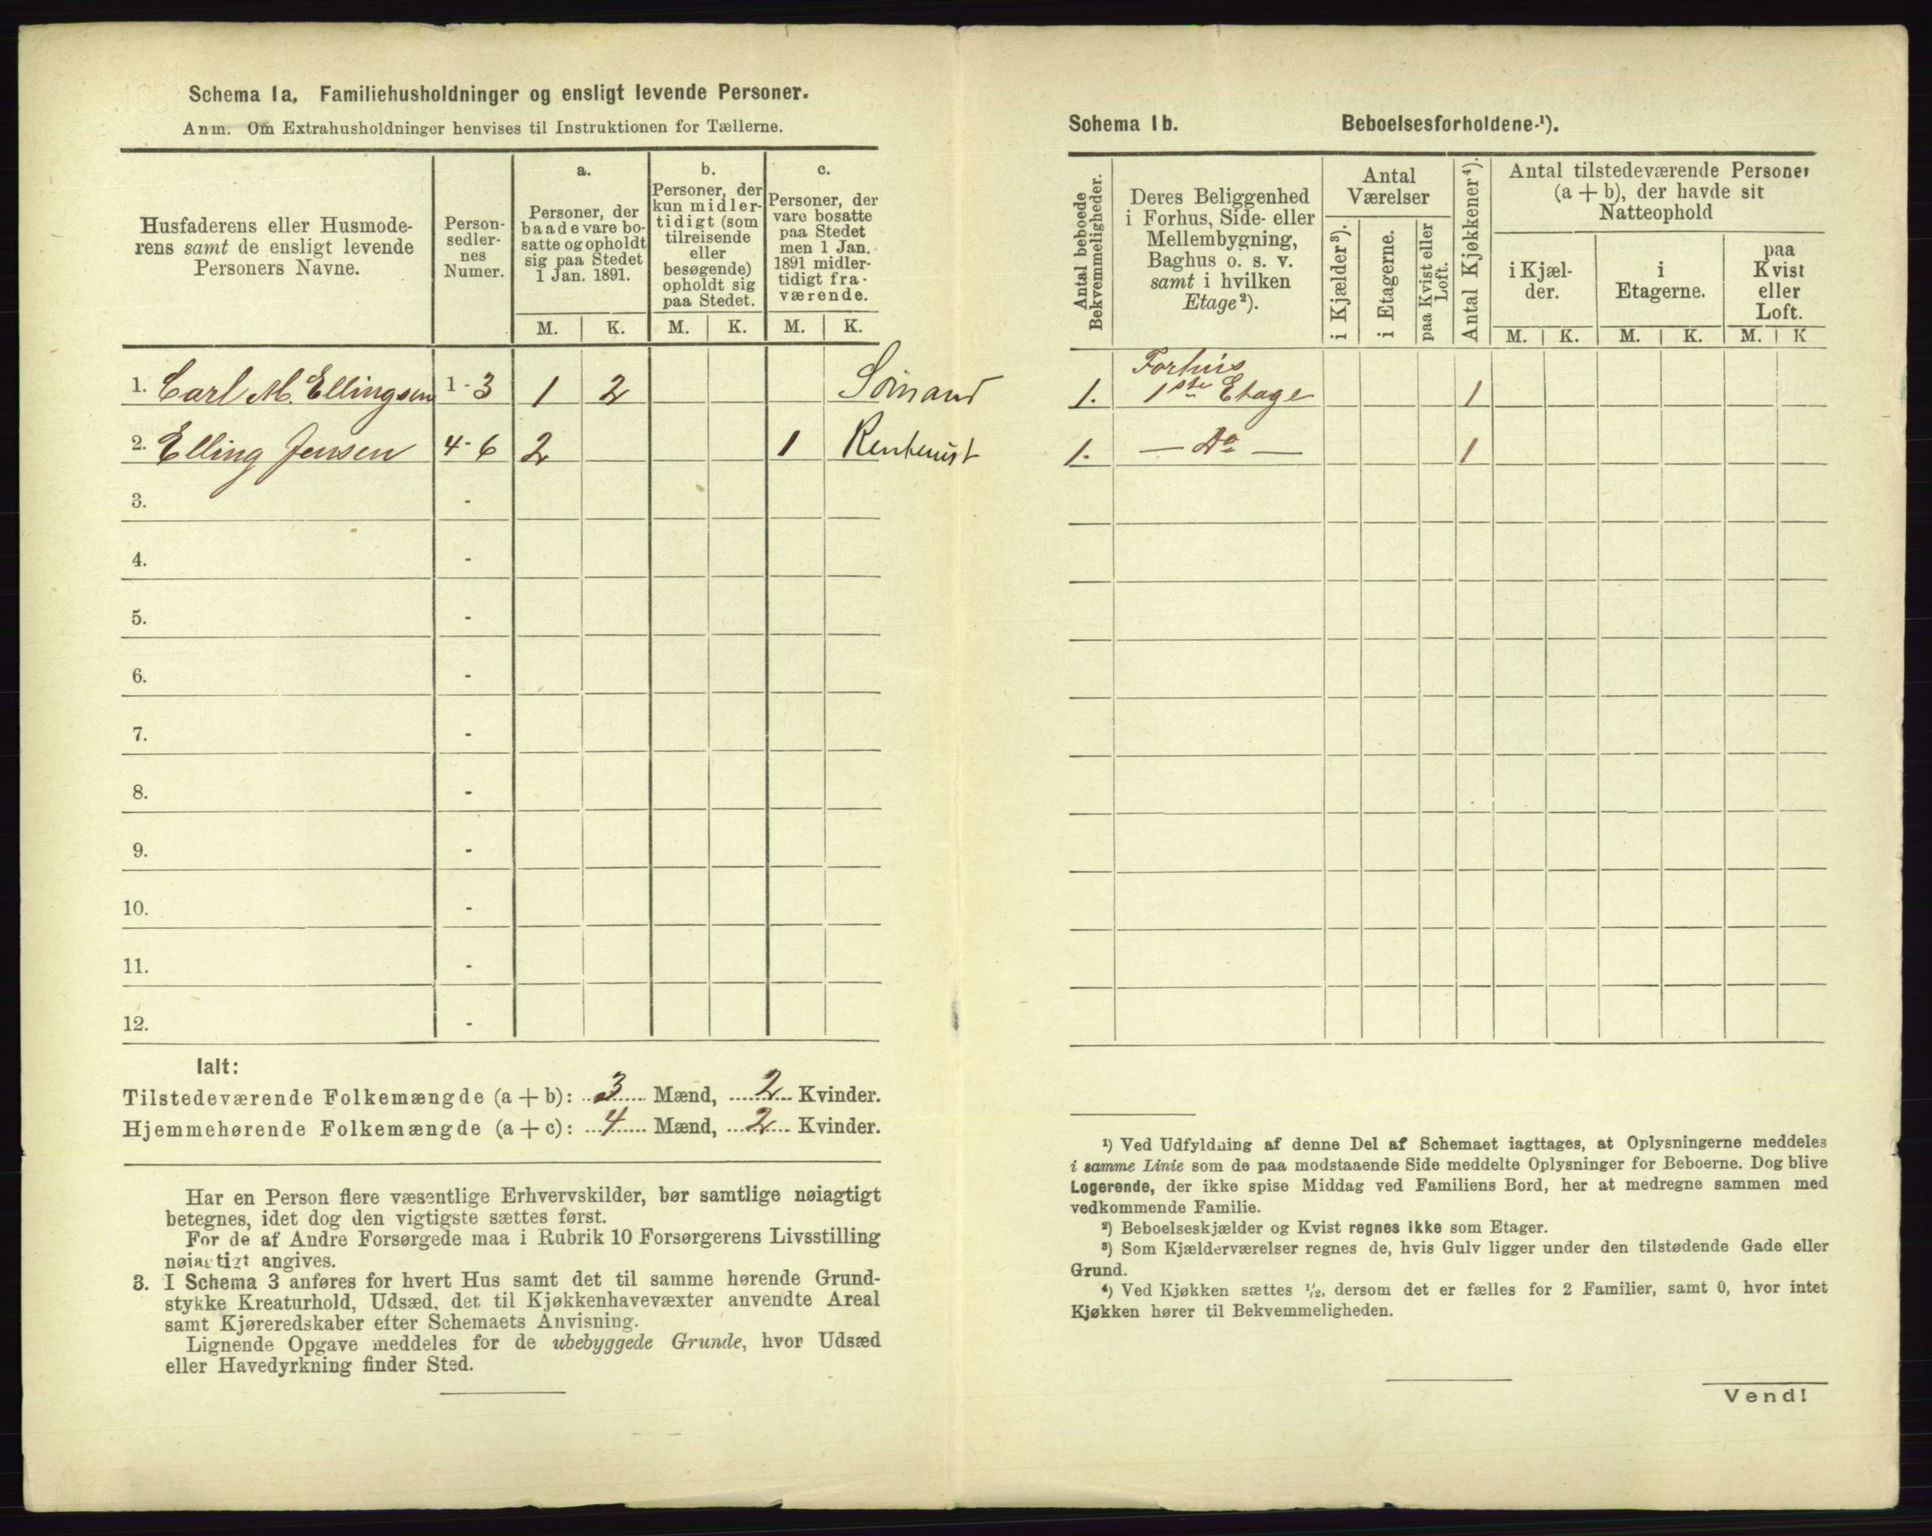 Schema 1a, Familiehusholdninger og ensligt levende Personer.
Anm. Om Extrahusholdninger henvises til Instruktionen for Tællerne.
Husfaderens eller Husmode-
rens samt de ensligt levende
Personers Navne.
Person-
sedler-
nes
Numer.
a.
Personer, der
baade vare bo-
satte og opholdt
sig paa Stedet
1 Jan. 1891.
M. K.
b.
Personer, der
kun midler-
tidigt (som
tilreisende
eller
besøgende)
opholdt sig
paa Stedet.
M. K.
c.
Personer, der
vare bosatte
paa Stedet
men 1 Jan.
1891 midler-
tidigt fra-
værende.
M. K.
1. Carl M. Ellingsen 1-3 1 2 Sømand
2. Elling Jensen 4-6 2 1 Rentenist
3. -
4. -
5. -
6. -
7. -
8. -
9. -
10. -
11. -
12. -
Ialt:
Tilstedeværende Folkemængde (a + b): 3 Mænd, 2 Kvinder.
Hjemmehørende Folkemængde (a + c): 4 Mænd, 2 Kvinder.
Har en Person flere væsentlige Erhvervskilder, bør samtlige nøiagtigt
betegnes, idet dog den vigtigste sættes først.
For de af Andre Forsørgede maa i Rubrik 10 Forsørgerens Livsstilling
nøiagtigt angives.
3. I Schema 3 anføres for hvert Hus samt det til samme hørende Grund-
stykke Kreaturhold, Udsæd, det til Kjøkkenhavevæxter anvendte Areal
samt Kjøreredskaber efter Schemaets Anvisning.
Lignende Opgave meddeles for de ubebyggede Grunde, hvor Udsæd
eller Havedyrkning finder Sted.
Schema 1b. Beboelsesforholdene¹).
Antal beboede
Bekvemmeligheder.
Deres Beliggenhed
i Forhus, Side- eller
Mellembygning,
Baghus o. s. v.
samt i hvilken
Etage²).
Antal
Værelser
i Kjælder³).
i Etagerne.
paa Kvist eller
Loft.
Antal Kjøkkener⁴).
Antal tilstedeværende Personer
(a + b), der havde sit
Natteophold
i Kjæl-
der.
M. K.
i
Etagerne.
M. K.
paa
Kvist
eller
Loft.
M. K
Forhus
1. 1ste Etage 1
1. — Do — 1
¹) Ved Udfyldning af denne Del af Schemaet iagttages, at Oplysningerne meddeles
i samme Linie som de paa modstaaende Side meddelte Oplysninger for Beboerne. Dog blive
Logerende, der ikke spise Middag ved Familiens Bord, her at medregne sammen med
vedkommende Familie.
²) Beboelseskjælder og Kvist regnes ikke som Etager.
³) Som Kjælderværelser regnes de, hvis Gulv ligger under den tilstødende Gade eller
Grund.
⁴) Ved Kjøkken sættes ½, dersom det er fælles for 2 Familier, samt 0, hvor intet
Kjøkken hører til Bekvemmeligheden.
Vend!